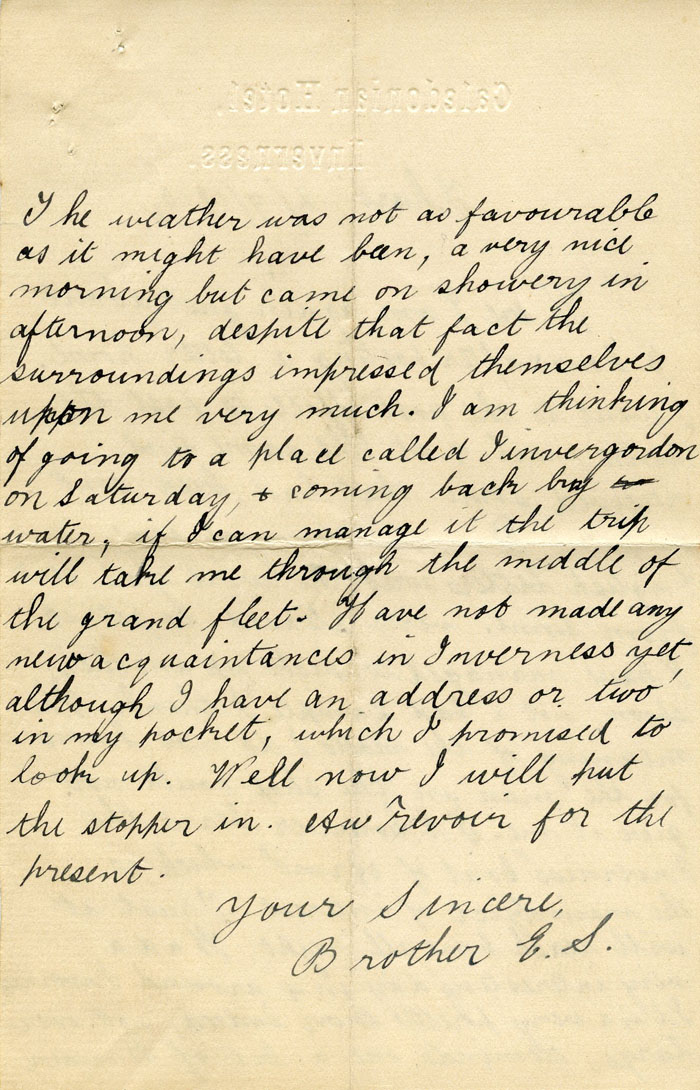 Caledonian Hotel,
Inverness.
The weather was not as favourable
as it might have been, a very nice
morning but came on showery in
afternoon, despite that fact the
surroundings impressed themselves
upon me very much. I am thinking
of going to a place called Iinvergordon
on Saturday, & coming back by
water, if I can manage it the trip
will take me through the middle of
the grand fleet. Have not made any
new acquaintances in Inverness yet,
although I have an address or two
in my pocket, which I promised to
look up. Well now I will put
the stopper in. Au revoir for the
present.
Your Sincere,
Brother E. S.